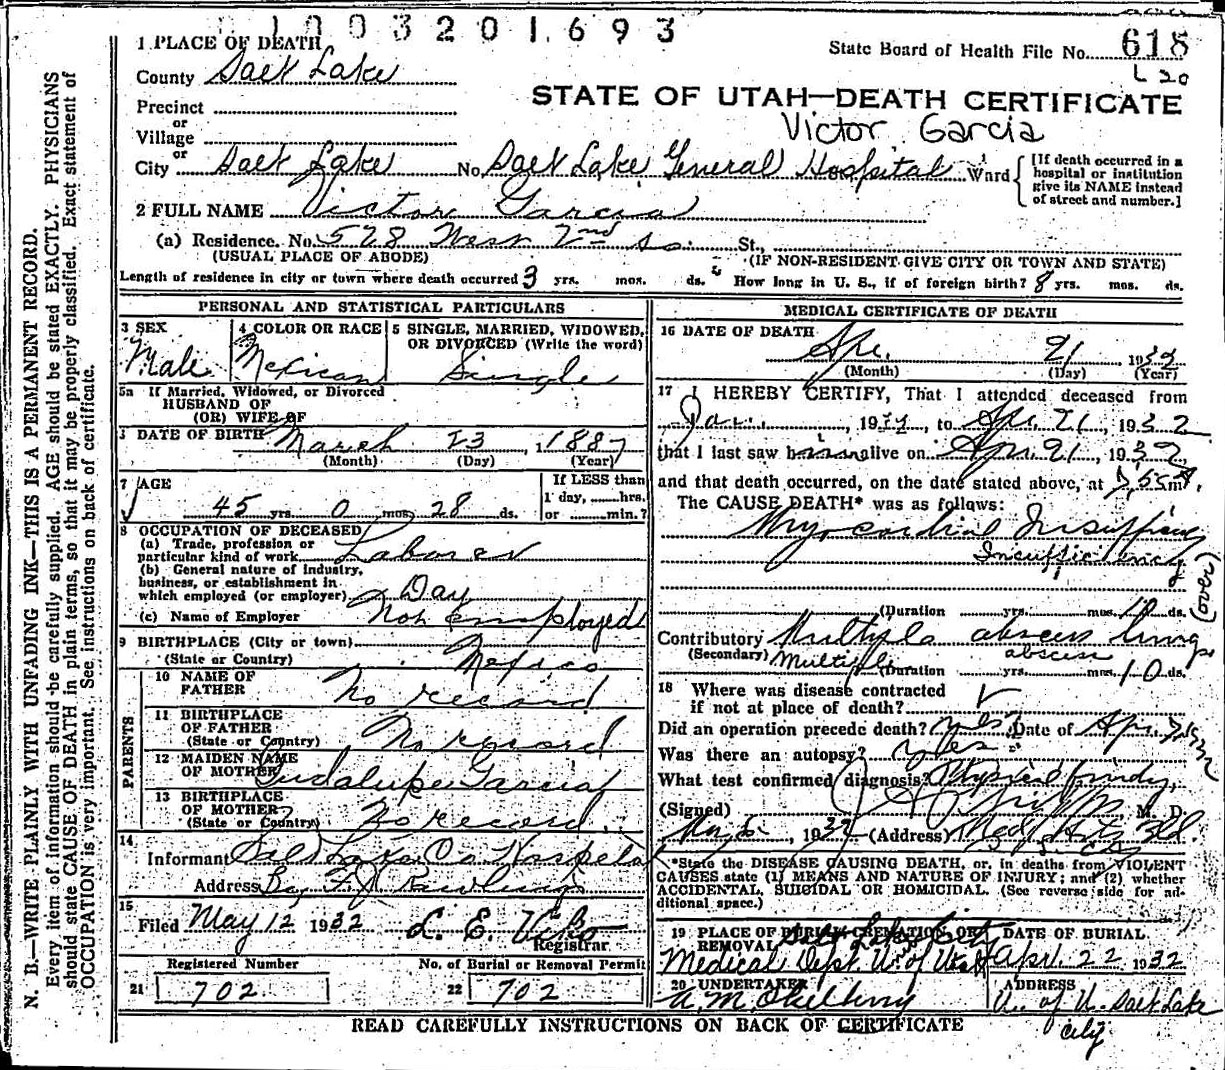 1003201693
1 PLACE OF DEATH
State Board of Health File No. 618
L 20
County Salt Lake
STATE OF UTAH—DEATH CERTIFICATE
Precinct
or
Village
Victor Garcia
or
City Salt Lake No. Salt Lake General Hospital Ward
[If death occurred in a hospital or institution give its NAME instead of street and number.]
2 FULL NAME Victor Garcia
(a) Residence. No. 528 West 2nd So. St.,
(USUAL PLACE OF ABODE) (IF NON-RESIDENT GIVE CITY OR TOWN AND STATE)
Length of residence in city or town where death occurred 3 yrs. mos. ds. How long in U. S., if of foreign birth? 8 yrs. mos. ds.
PERSONAL AND STATISTICAL PARTICULARS
3 SEX Male
4 COLOR OR RACE Mexican
5 SINGLE, MARRIED, WIDOWED, OR DIVORCED (Write the word) Single
5a If Married, Widowed, or Divorced
HUSBAND OF
(OR) WIFE OF
DATE OF BIRTH March 23, 1887
(Month) (Day) (Year)
7 AGE 45 yrs. 0 mos. 28 ds.
If LESS than
1 day, hrs.
or min.?
8 OCCUPATION OF DECEASED
(a) Trade, profession or
particular kind of work Laborer
(b) General nature of industry,
business, or establishment in
which employed (or employer) Day
(c) Name of Employer Not Employed
9 BIRTHPLACE (City or town)
(State or Country) Mexico
PARENTS
10 NAME OF
FATHER No record
11 BIRTHPLACE
OF FATHER
(State or Country) No record
12 MAIDEN NAME
OF MOTHER Guadalupe Garcia
13 BIRTHPLACE
OF MOTHER?
(State or Country) No record.
14
Informant Salt Lake Co Hospital
Address By F. J. Rawlings
15
Filed May 12 1932 L. E. Viko
Registrar
Registered Number No. of Burial or Removal Permit
21 702 22 702
MEDICAL CERTIFICATE OF DEATH
16 DATE OF DEATH
Apr. 21 1932
(Month) (Day) (Year)
17 I HEREBY CERTIFY, That I attended deceased from
Jan., 1932, to Apr 21, 1932
that I last saw him alive on Apr. 21, 1932
and that death occurred, on the date stated above, at m.
The CAUSE DEATH* was as follows:
Myocardial Insufficiency
Insufficiency
(over)
(Duration yrs. mos. 10 ds.
Contributory Multiple abscess lungs
(Secondary) Multiple abscess
(Duration yrs. mos. 10 ds.
18 Where was disease contracted
if not at place of death?
Did an operation precede death? yes Date of Apr.
Was there an autopsy? Yes
What test confirmed diagnosis? Physical findings
(Signed) M. D.
1932 (Address) Med. Arts Bld.
*State the DISEASE CAUSING DEATH, or, in deaths from VIOLENT
CAUSES state (1) MEANS AND NATURE OF INJURY; and (2) whether
ACCIDENTAL, SUICIDAL OR HOMICIDAL. (See reverse side for ad-
ditional space.)
19 PLACE OF BURIAL CREMATION OR
REMOVAL Salt Lake City
Medical Dept. U. of Utah
DATE OF BURIAL.
Apr. 22 1932
20 UNDERTAKER
ADDRESS
U. of U. Salt Lake
City
READ CAREFULLY INSTRUCTIONS ON BACK OF CERTIFICATE
N. B.—WRITE PLAINLY WITH UNFADING INK—THIS IS A PERMANENT RECORD.
Every item of information should be carefully supplied. AGE should be stated EXACTLY. PHYSICIANS
should state CAUSE OF DEATH in plain terms, so that it may be properly classified. Exact statement of
OCCUPATION is very important. See instructions on back of certificate.